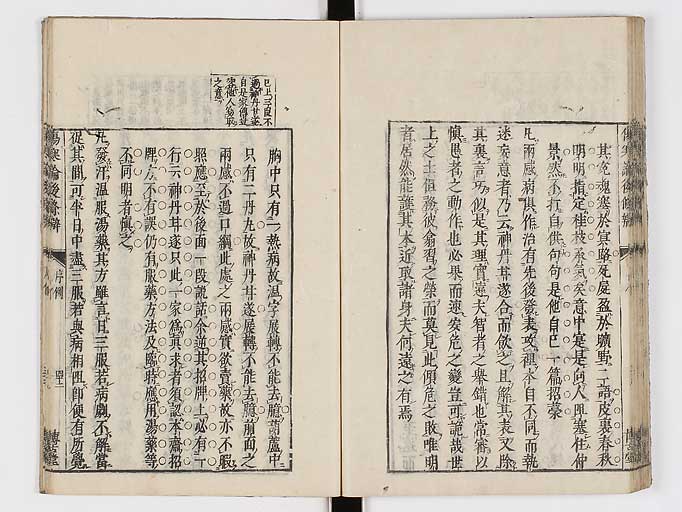 其冤魂塞於冥路死屍盈於曠野二語皮裏春秋
明明指定桂枝承氣矣意中定是向人即塞住仲
景然不打自供句句是他自己一篇招藁
凡兩感病俱作治有先後發表攻裏本自不同而執
迷妄意者乃云神丹甘遂合而飲之且解其表又除
其裏言巧似是其理實違夫智者之舉錯也常審以
慎愚者之動作也必果而速安危之變豈可詭哉世
上之士但務彼翕習之榮而莫見此傾危之敗唯明
者居然能護其本近取諸身夫何遠之有焉
已上三段不
過神丹甘遂
自是家傳故
他人勿取
之意
胸中只有一熱病故溫字展轉不能去膽葫蘆中
只有二丹丸故神丹甘遂展轉不能去膽前面之
兩感不過口頭此處之兩感實欲賣藥故亦不暇
照應至於後面一段詭話余逆其招牌上必有一
行云神丹甘遂只此一家為真求者須認本齋招
牌左不有誤仍有服藥方法及臨時應用湯藥等
不同明者慎之
凡發汗溫服湯藥其方雖言日三服若病劇不解當
促其間可半日中盡三服若與病相阻即便有所覺
傷寒論後條辨 序例